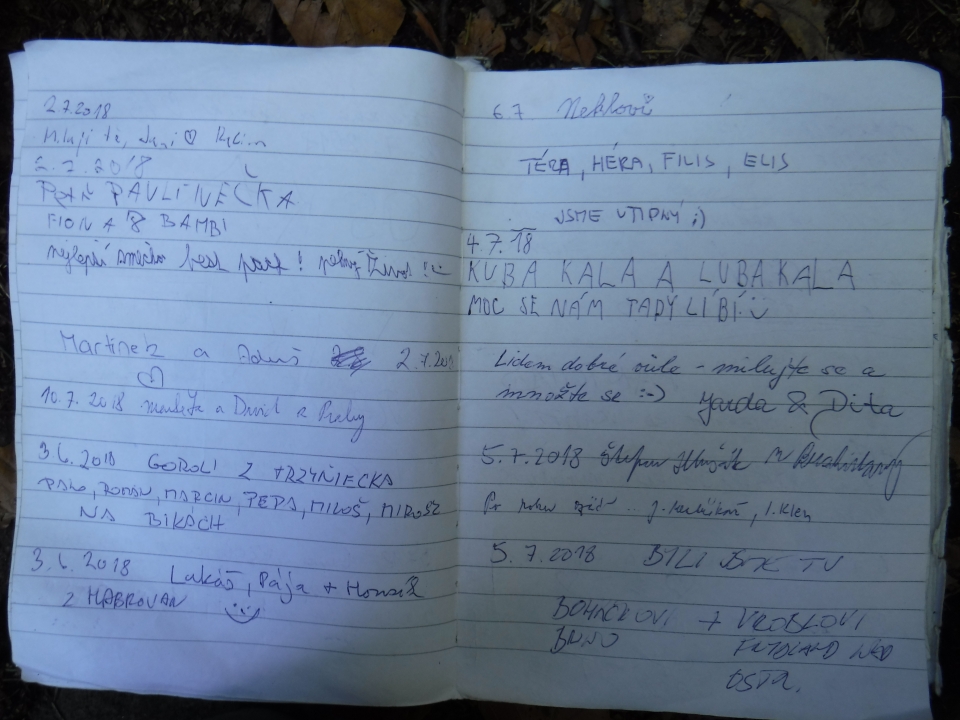 2.7.2018
Miluji tě, ♡
2.7.2018
PAVLÍNEČKA
FIONA & BAMBI
nejlepší best part!
Martinek a 2.7.201
10.7.2018 a David z Prahy
3.6.2018 GOROLÍ Z TRZYŃIECKA
PALO, ROMAN, MARCIN, PEPA, MILOŠ, MIROŠŽ
NA BIKÁCH
3.6.2018 Lukáš, Pája + Honzík
Z HABROVAN
6.7
TÉRA, HÉRA, FILIS, ELIS
JSME VTIPNÝ ;)
4.7.18
KUBA KALA A LUBA KALA
MOC SE NÁM TADY LÍBÍ
Lidem dobré vůle - milujte se a
množte se :-) Jarda & Dita
5.7.2018 Štěpán
5.7.2018 BYLI JSTE TU
BOHÁČKOVI +
BRNO NAD
OSTR.